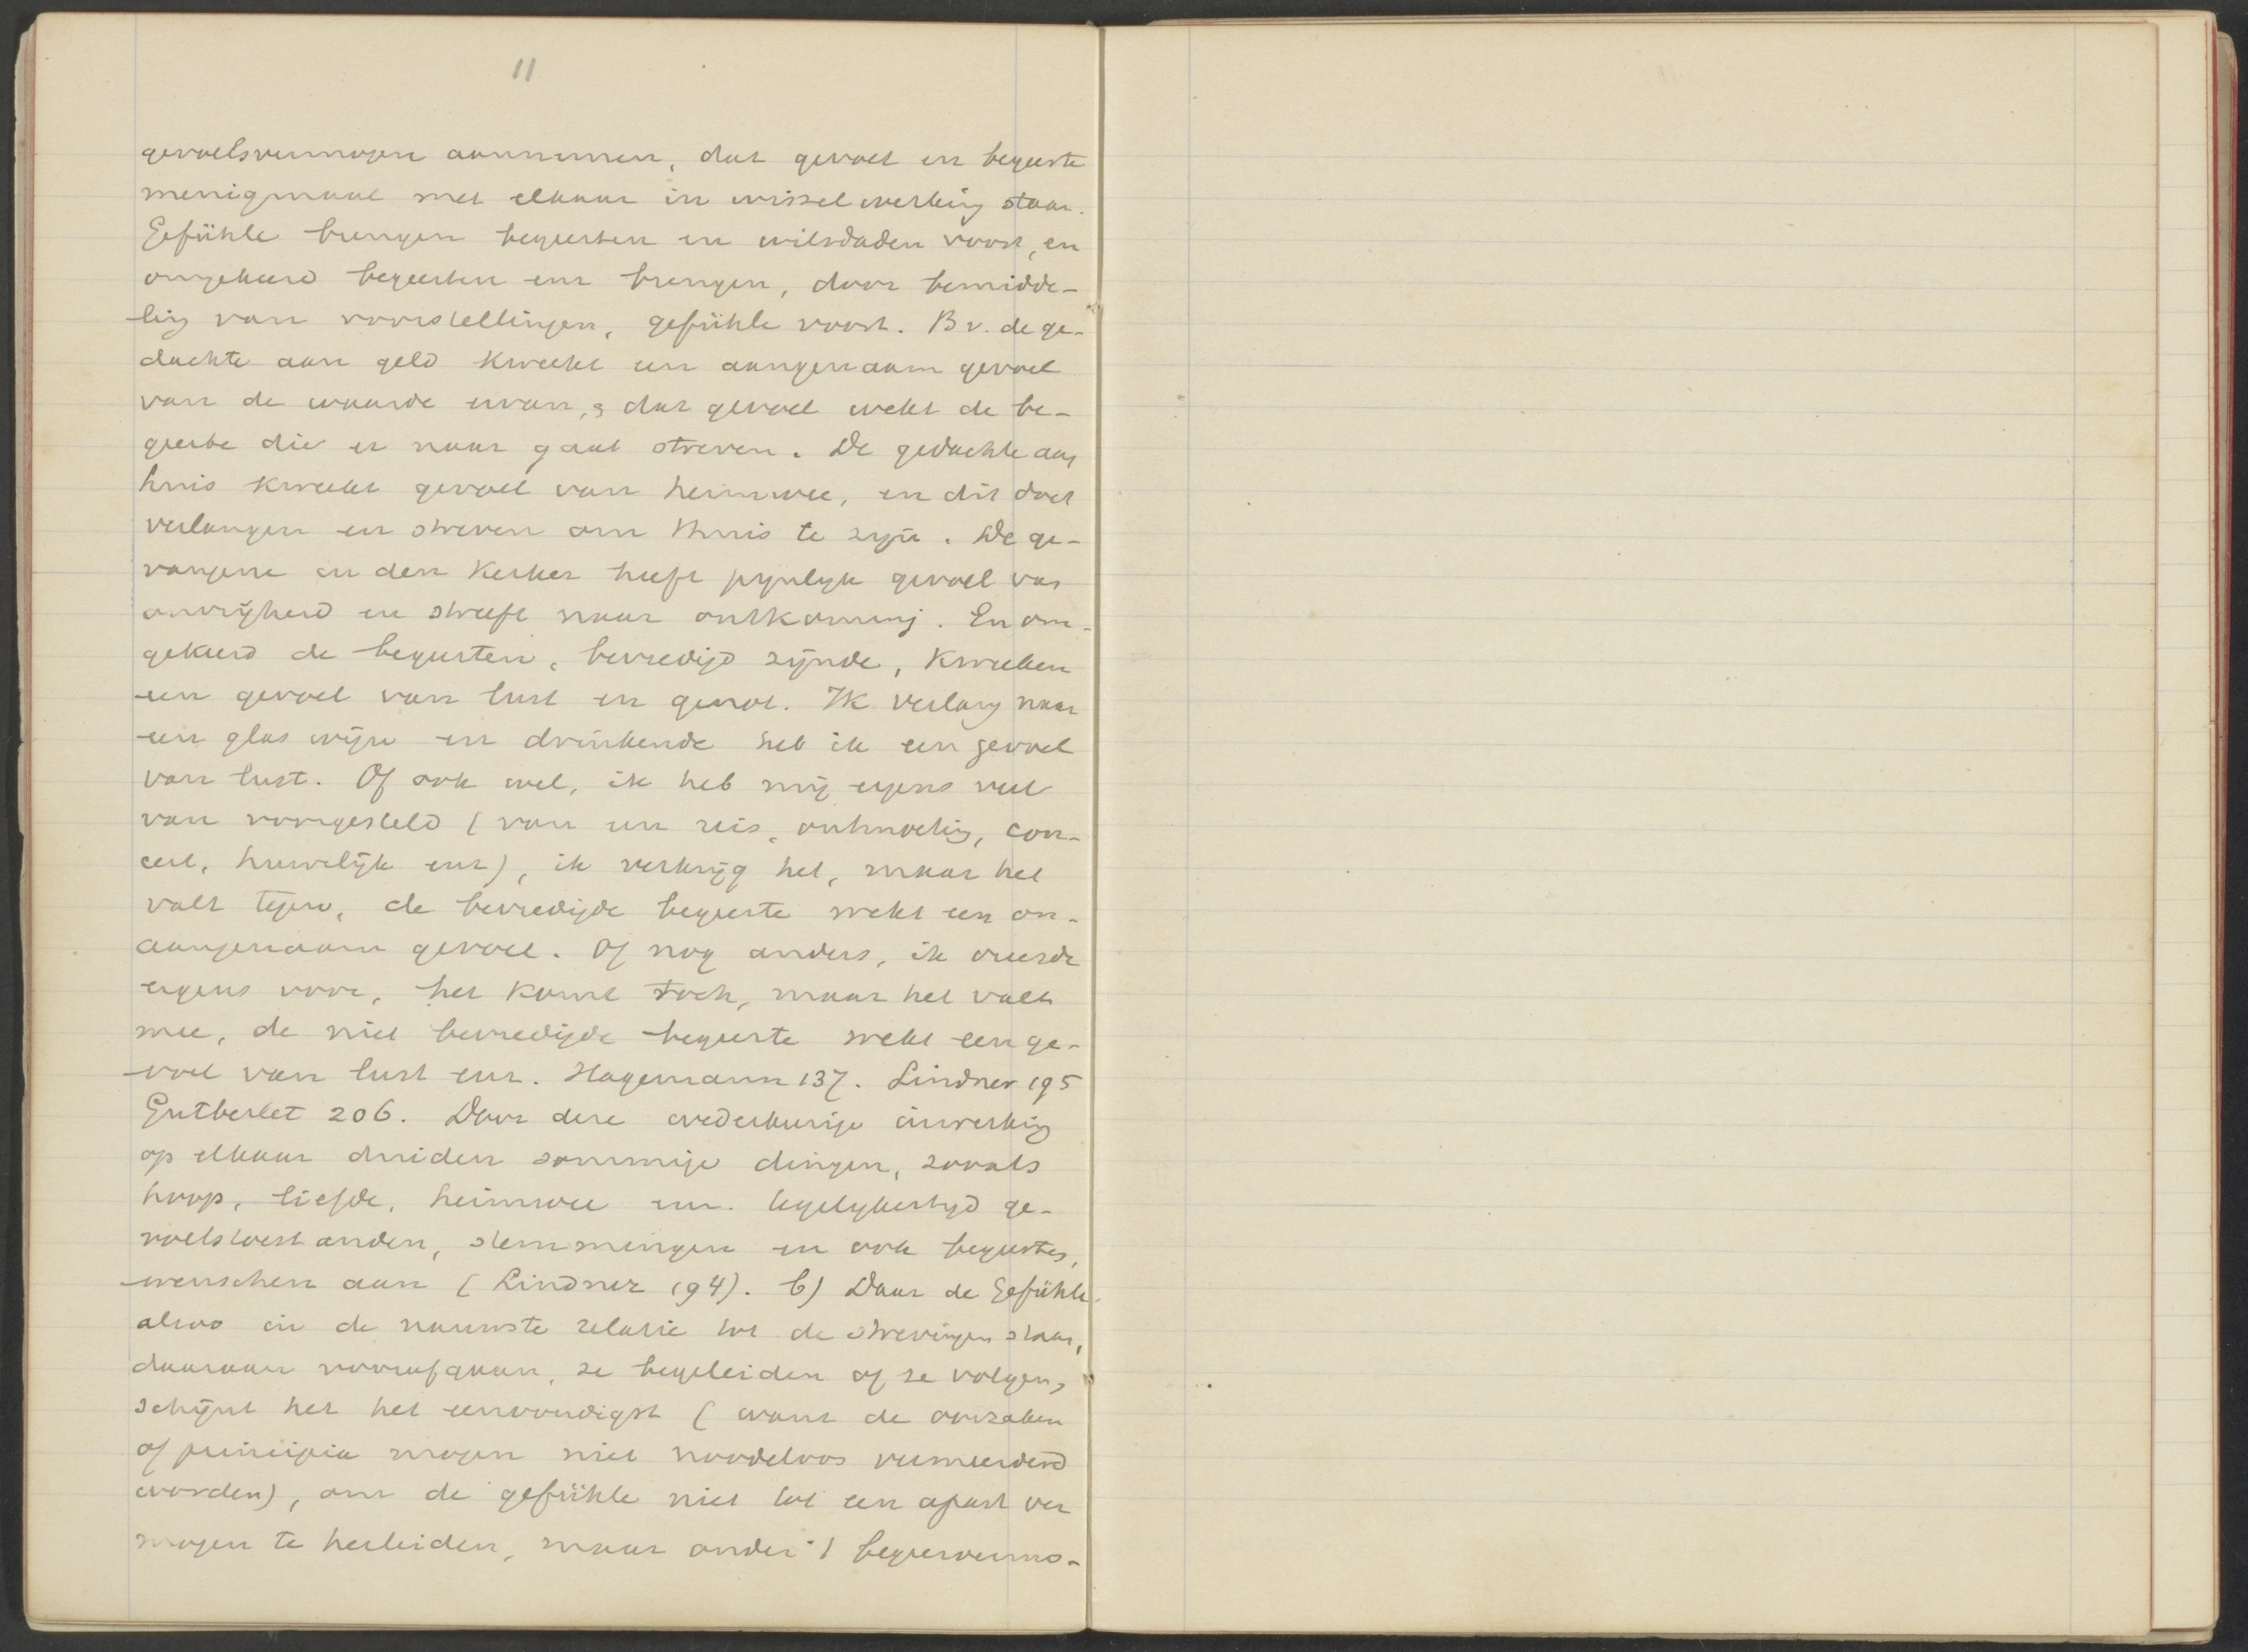 11
gevoelsvermogen aannemen, dat gevoel en begeerte
menigmaal met elkaar in wisselwerking staan.
Gefühle brengen begeerten en wilsdaden voort, en
omgekeerd begeerten enz brengen, door bemidde-
ling van voorstellingen, gefühle voort. Bv. de ge-
dachte aan geld kweekt een aangenaam gevoel
van de waarde ervan, & dat gevoel wekt de be-
geerte die er naar gaat streven. De gedachte aan
huis kweekt gevoel van heimwee, en dit doet
verlangen en streven om thuis te zijn. De ge-
vangene in den kerker heeft pijnlyk gevoel van
onvrijheid en streeft naar ontkoming. En om-
gekeerd de begeerten, bevredigd zijnde, kweeken
een gevoel van lust en genot. Ik verlang naar
een glas wijn en drinkende heb ik een gevoel
van lust. Of ook wel, ik heb mij ergens veel
van voorgesteld (van een reis, ontmoeting, con-
cert, huwelijk enz), ik verkrijg het, maar het
valt tegen, de bevredigde begeerte wekt een on-
aangenaam gevoel. Of nog anders, ik vreesde
ergens voor, het komt toch, maar het valt
mee, de niet bevredigde begeerte wekt een ge-
voel van lust enz. Hagemann 137. Lindner 195
Gutberlet 206. Door deze wederkeerige inwerking
op elkaar duiden sommige dingen, zooals
hoop, liefde, heimwee enz. tegelykertyd ge-
voelstoestanden, stemmingen en ook begeertes,
wenschen aan (Lindner 194). b) Daar de Gefühle
alzoo in de nauwste relatie tot de strevingen staan,
daaraan voorafgaan, ze begeleiden of ze volgen,
schijnt het het eenvoudigst (want de oorzaken
of principia mogen niet noodeloos vermeerderd
worden), om de gefühle niet tot een apart ver
mogen te herleiden, maar onder 't begeervermo-